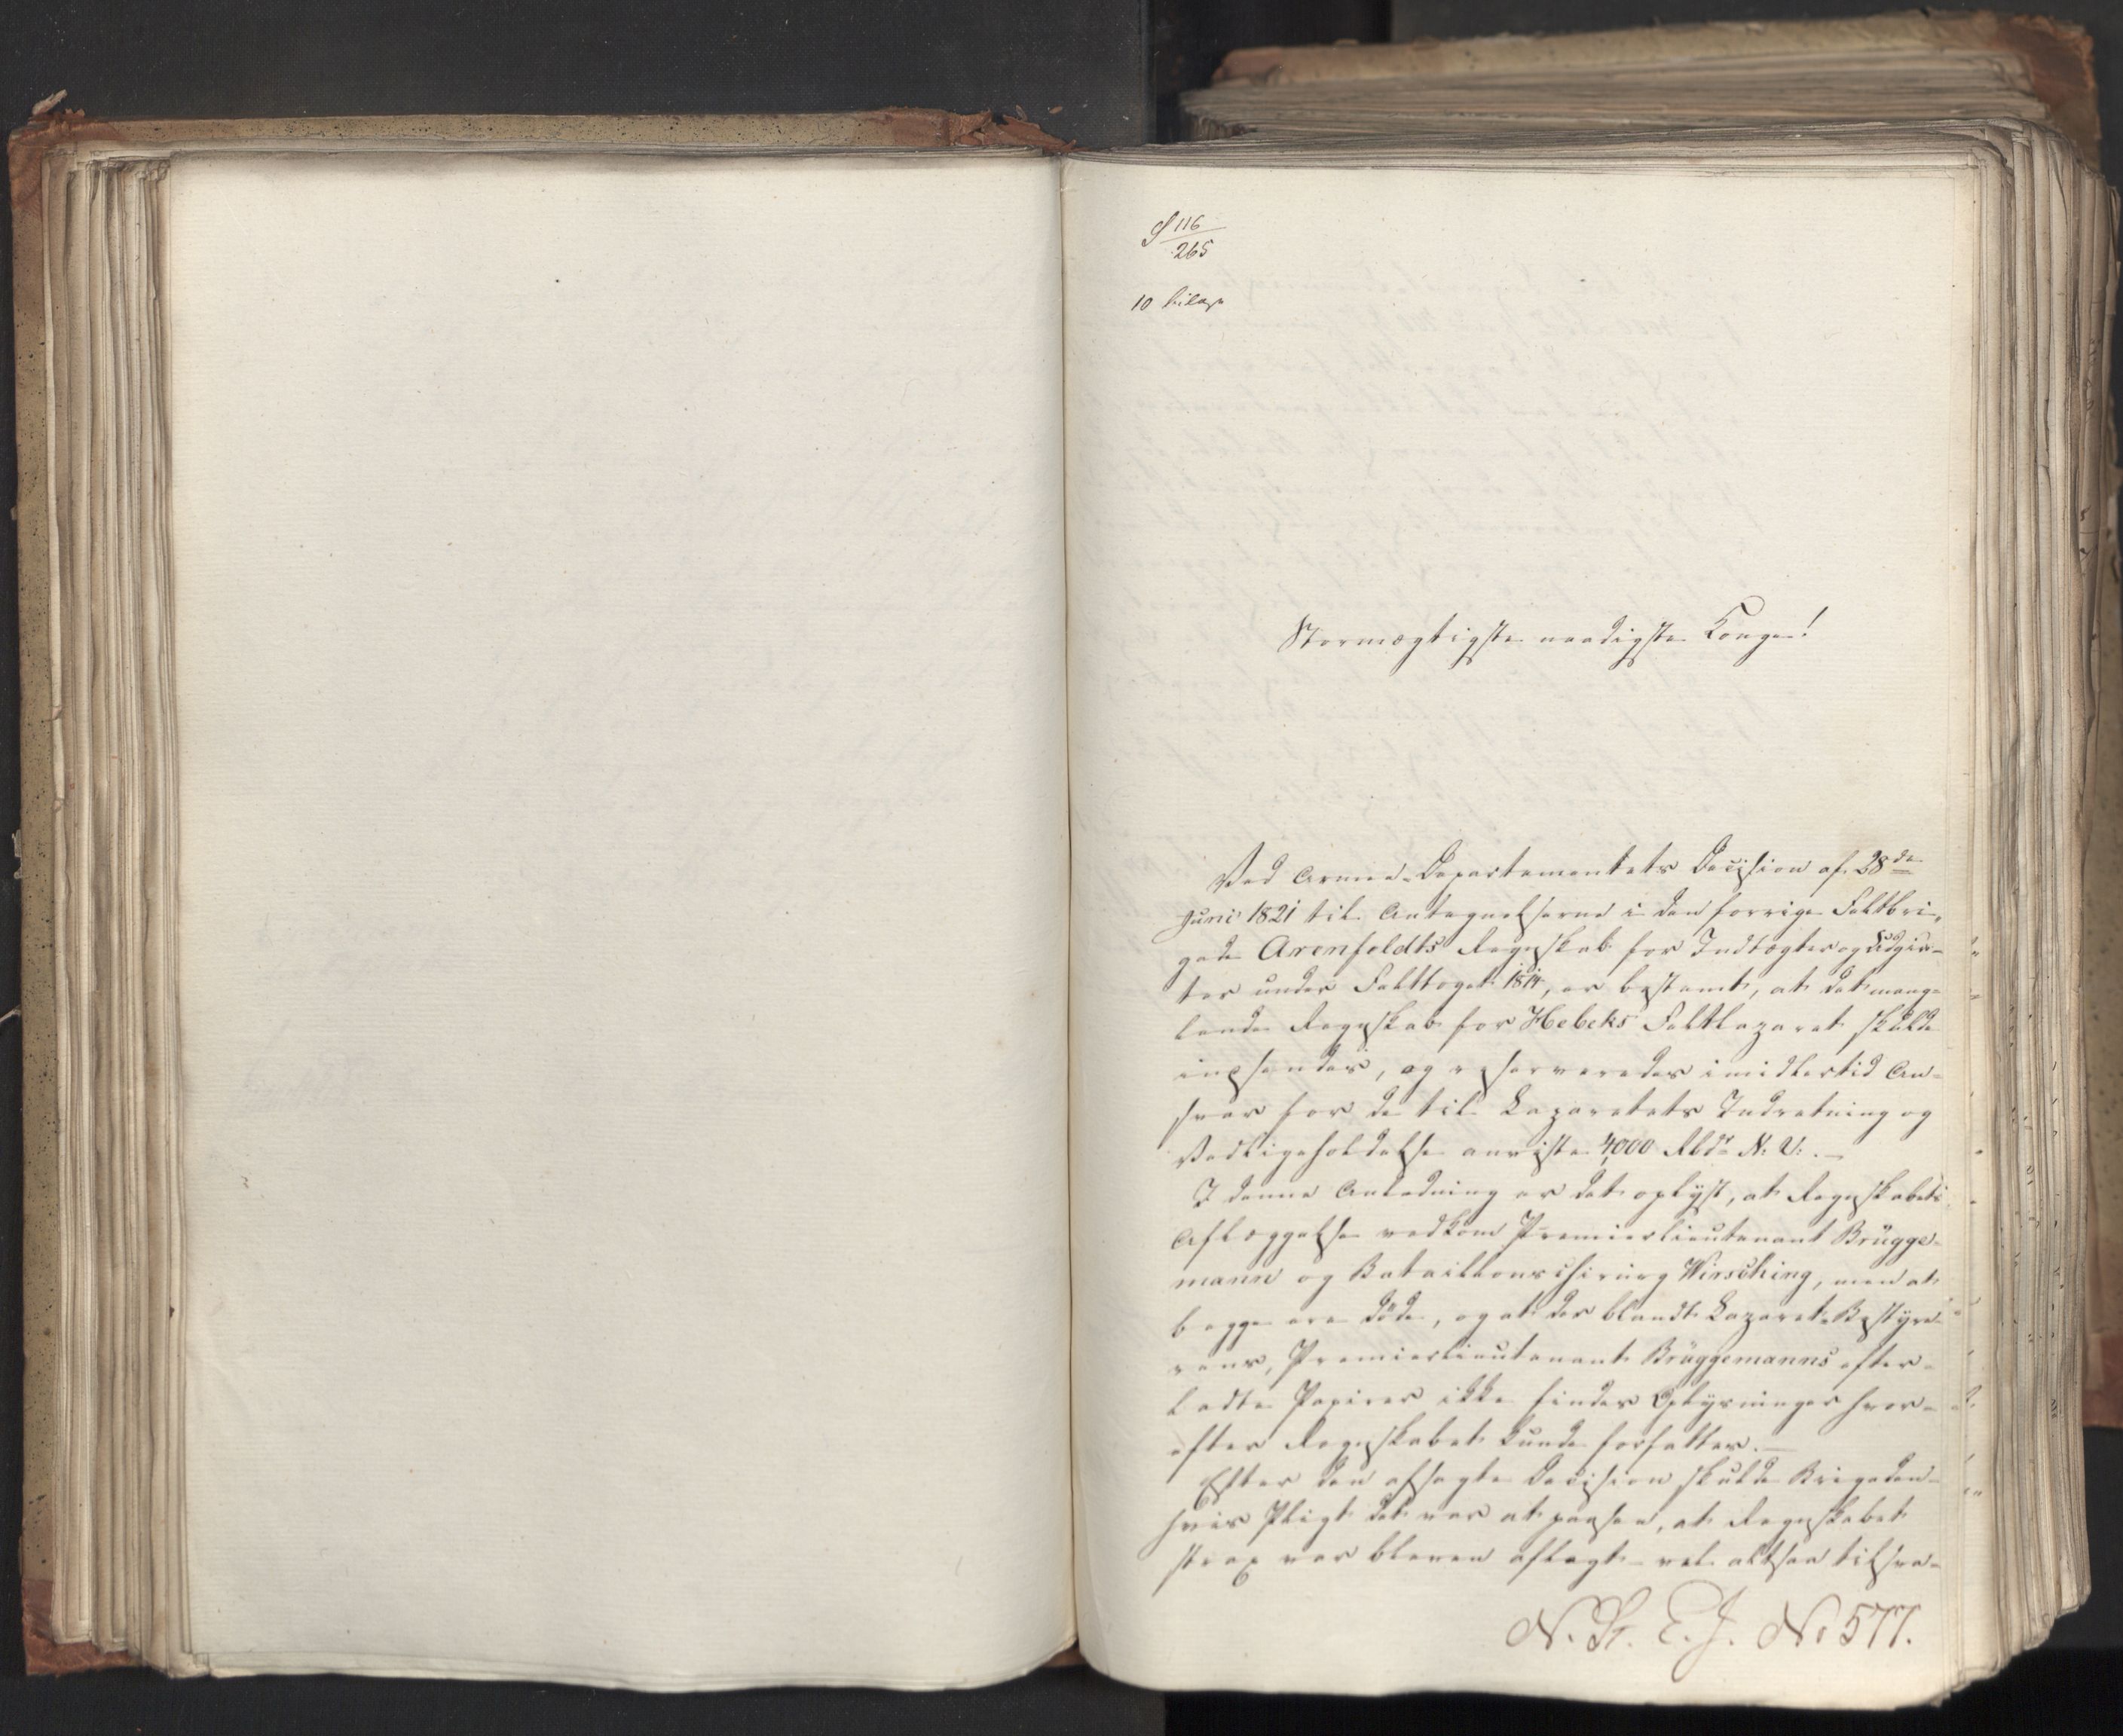 S 116
265
10 bilage
Stormægtigste naadigste Konge!
Ved Armee-Departementets Decision af 28de
Junii 1821 til Antegnelserne i den forrige Feltbri-
gade Arenfeldts Regnskab for Indtægter og Udgiv-
ter under Felttoget 1814, er bestemt, at det mang-
lende Regnskab for Hebeks Feltlazaret skulde
indsendes, og reserveredes imidlertid An-
svar for de til Lazarettets Indretning og
Vedligeholdelse anviste 4,000 Rbdr N. V. —
I denne Anledning er det oplyst, at Regnskabets
Aflæggelse vedkom Premierlieutenant Brügge-
mann og Bataillonschirurg Wirsching, men at
begge ere døde, og at der blandt Lazaret-Bestyre-
rens, Premierlieutenant Brüggemanns efter-
ladte Papirer ikke findes Oplysninger hvor-
efter Regnskabet kunde forfattes. —
Efter den afsagte Decision skulde Brigaden -
hvis Pligt det var at paasee, at Regnskabet
strax var bleven aflagt - vel altsaa tilsva-
N. St. E. J. No 577.